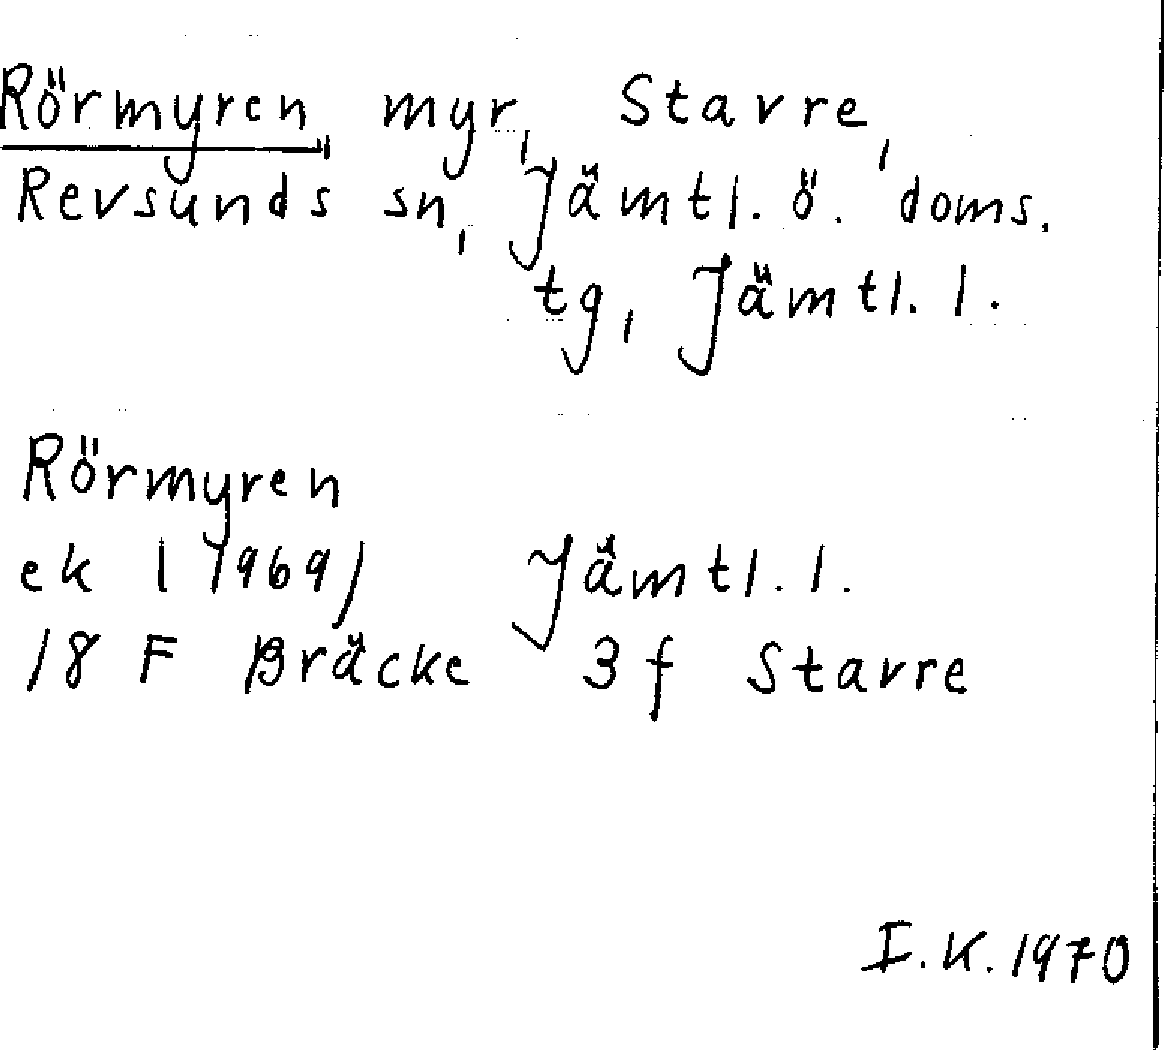 Rörmyren, myr, Stavre,
Revsunds sn, Jämtl. ö. doms.
tg, Jämtl. l.
Rörmyren
ek (1969) Jämtl. l.
18 F Bräcke 3 f Stavre
I. K. 1970